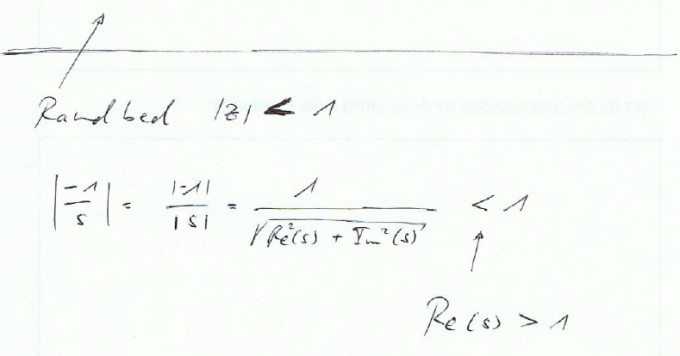 Randbed |z| < 1
|-1/s| = |-1|/|s| = 1/√(Re²(s) + Im²(s)) < 1
Re(s) > 1